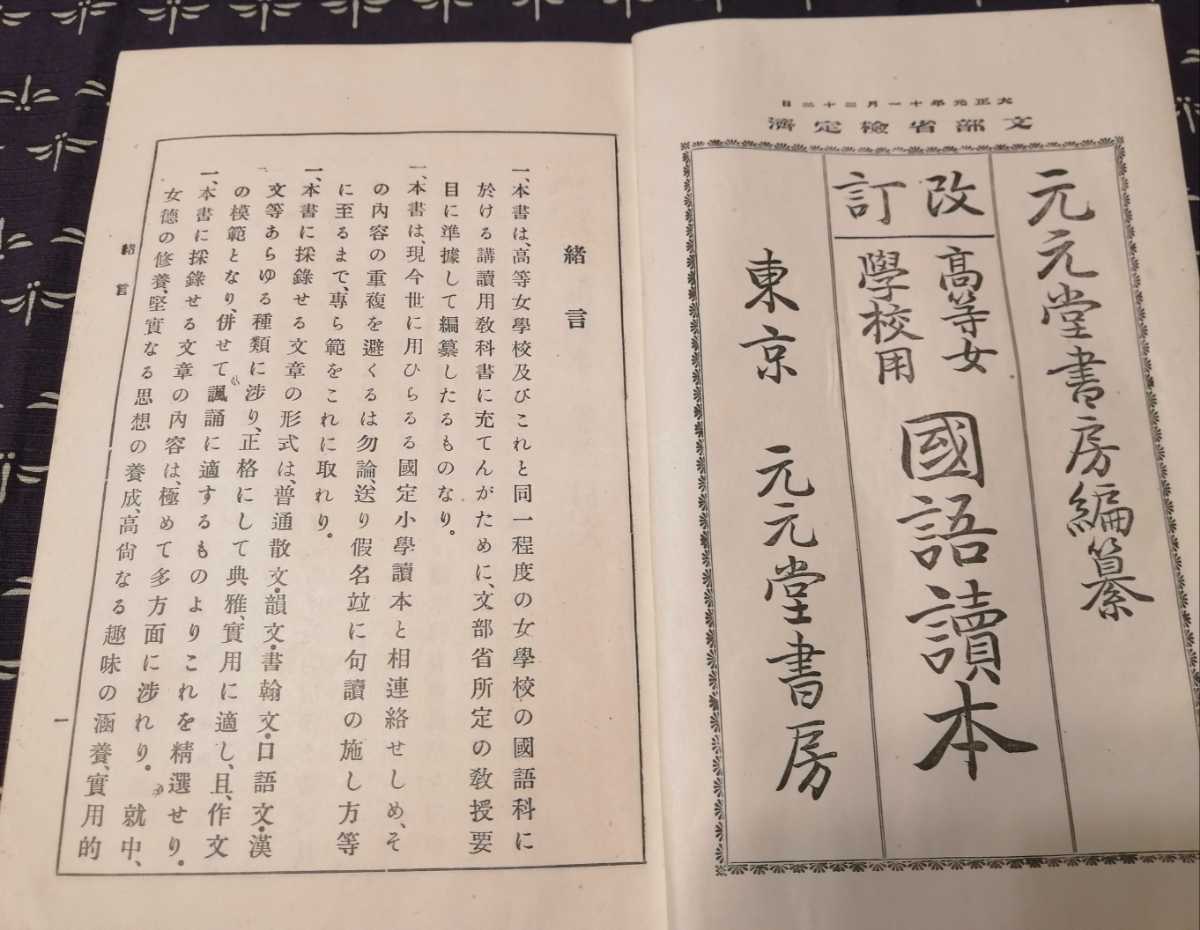 大正元年十一月三十二日
文部省檢定濟
元元堂書房編纂
改訂
高等女
學校用
國語讀本
東京 元元堂書房
緒言
一、本書は、高等女學校及びこれと同一程度の女學校の國語科に
於ける講讀用敎科書に充てんがために、文部省所定の敎授要
目に準據して編纂したるものなり。
一、本書は、現今世に用ひらるる國定小學讀本と相連絡せしめ、そ
の內容の重複を避くるは勿論、送り假名竝に句讀の施し方等
に至るまで、專ら範をこれに取れり。
一、本書に採錄せる文章の形式は、普通散文・韻文・書翰文・口語文・漢
文等あらゆる種類に涉り、正格にして典雅、實用に適し、且、作文
の模範となり、併せて諷誦に適するものよりこれを精選せり。
一、本書に採錄せる文章の內容は、極めて多方面に涉れり。就中、
女德の修養、堅實なる思想の養成、高尙なる趣味の涵養、實用的
緒言
一